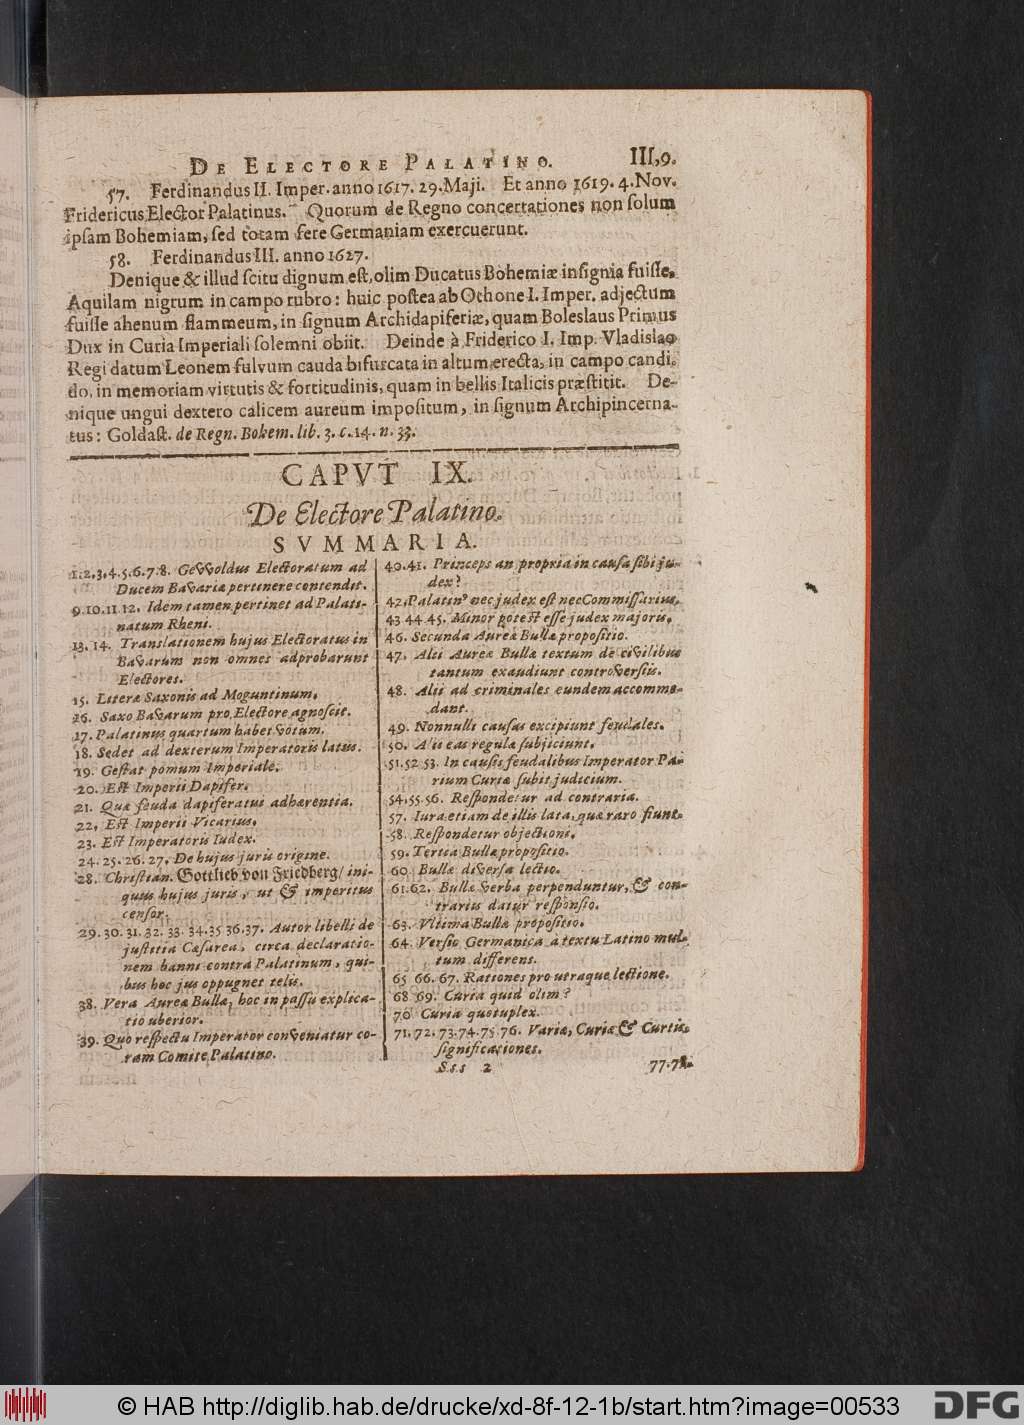 DE ELECTORE PALATINO. III,9.
57. Ferdinandus II. Imper. anno 1617. 29. Maji. Et anno 1619. 4. Nov.
Fridericus Elector Palatinus. Quorum de Regno concertationes non solum
ipsam Bohemiam, sed totam fere Germaniam exercuerunt.
58. Ferdinandus III. anno 1627.
Denique & illud scitu dignum est, olim Ducatus Bohemiæ insignia fuisse,
Aquilam nigrum in campo rubro: huic postea ab Othone I. Imper. adjectum
fuisse ahenum flammeum, in signum Archidapiferiæ, quam Boleslaus Primus
Dux in Curia Imperiali solemni obiit. Deinde à Friderico I. Imp. Vladislao
Regi datum Leonem fulvum cauda bifurcata in altum erecta, in campo candi-
do, in memoriam virtutis & fortitudinis, quam in bellis Italicis præstitit. De-
nique ungui dextero calicem aureum impositum, in signum Archipincerna-
tus: Goldast. de Regn. Bohem. lib. 3. c. 14. n. 33.
CAPVT IX.
De Electore Palatino.
SVMMARIA.
1. 2. 3. 4. 5. 6. 7. 8. GeVVoldus Electoratum ad
Ducem Bavariæ pertinere contendit.
9. 10. 11. 12. Idem tamen pertinet ad Palati-
natum Rheni.
13. 14. Translationem hujus Electoratus in
Bavarum non omnes adprobarunt
Electores.
15. Literæ Saxonis ad Moguntinum.
16. Saxo Bavarum pro Electore agnoscit.
17. Palatinus quartum habet votum.
18. Sedet ad dexterum Imperatoris latus.
19. Gestat pomum Imperiale.
20. Est Imperii Dapifer.
21. Quæ feuda dapiferatui adhærentia.
22. Est Imperii Vicarius.
23. Est Imperatoris Iudex.
24. 25. 26. 27. De hujus juris origine.
28. Christian. Gottlieb von Friedberg/ ini-
quus hujus juris, ut & imperitus
censor.
29. 30. 31. 32. 33. 34. 35 36. 37. Autor libelli de
justitia Cæsarea, circa declaratio-
nem banni contra Palatinum, qui-
bus hoc jus oppugnet telis.
38. Vera Aureæ Bullæ, hoc in passu explica-
tio uberior.
39. Quo respectu Imperator conveniatur co-
ram Comite Palatino.
40. 41. Princeps an propria in causa sibi ju-
dex?
42. Palatinꝰ nec judex est nec Commissarius.
43 44 45. Minor potest esse judex majoris.
46. Secunda Aureæ Bullæ propositio.
47. Alii Aureæ Bullæ textum de civilibus
tantum exaudiunt controversiis.
48. Alii ad criminales eundem accommo-
dant.
49. Nonnulli causas excipiunt feudales.
50. Alii eas regulæ subjiciunt.
51. 52 53. In causis feudalibus Imperator Pa-
rium Curiæ subit judicium.
54. 55. 56. Respondetur ad contraria.
57. Iura etiam de illis lata, quæ raro fiunt.
58. Respondetur objectioni.
59. Tertia Bullæ propositio.
60 Bullæ diversa lectio.
61. 62. Bullæ verba perpenduntur, & con-
trariis datur responsio.
63. Vltima Bullæ propositio.
64. Versio Germanica à textu Latino mul-
tum differens.
65 66. 67. Rationes pro utraque lectione.
68 69. Curia quid olim?
70 Curia quotuplex.
71. 72. 73. 74. 75. 76. Variæ, Curiæ & Curtis,
significationes.
Sss 2 77. 78.
© HAB http://diglib.hab.de/drucke/xd-8f-12-1b/start.htm?image=00533
DFG